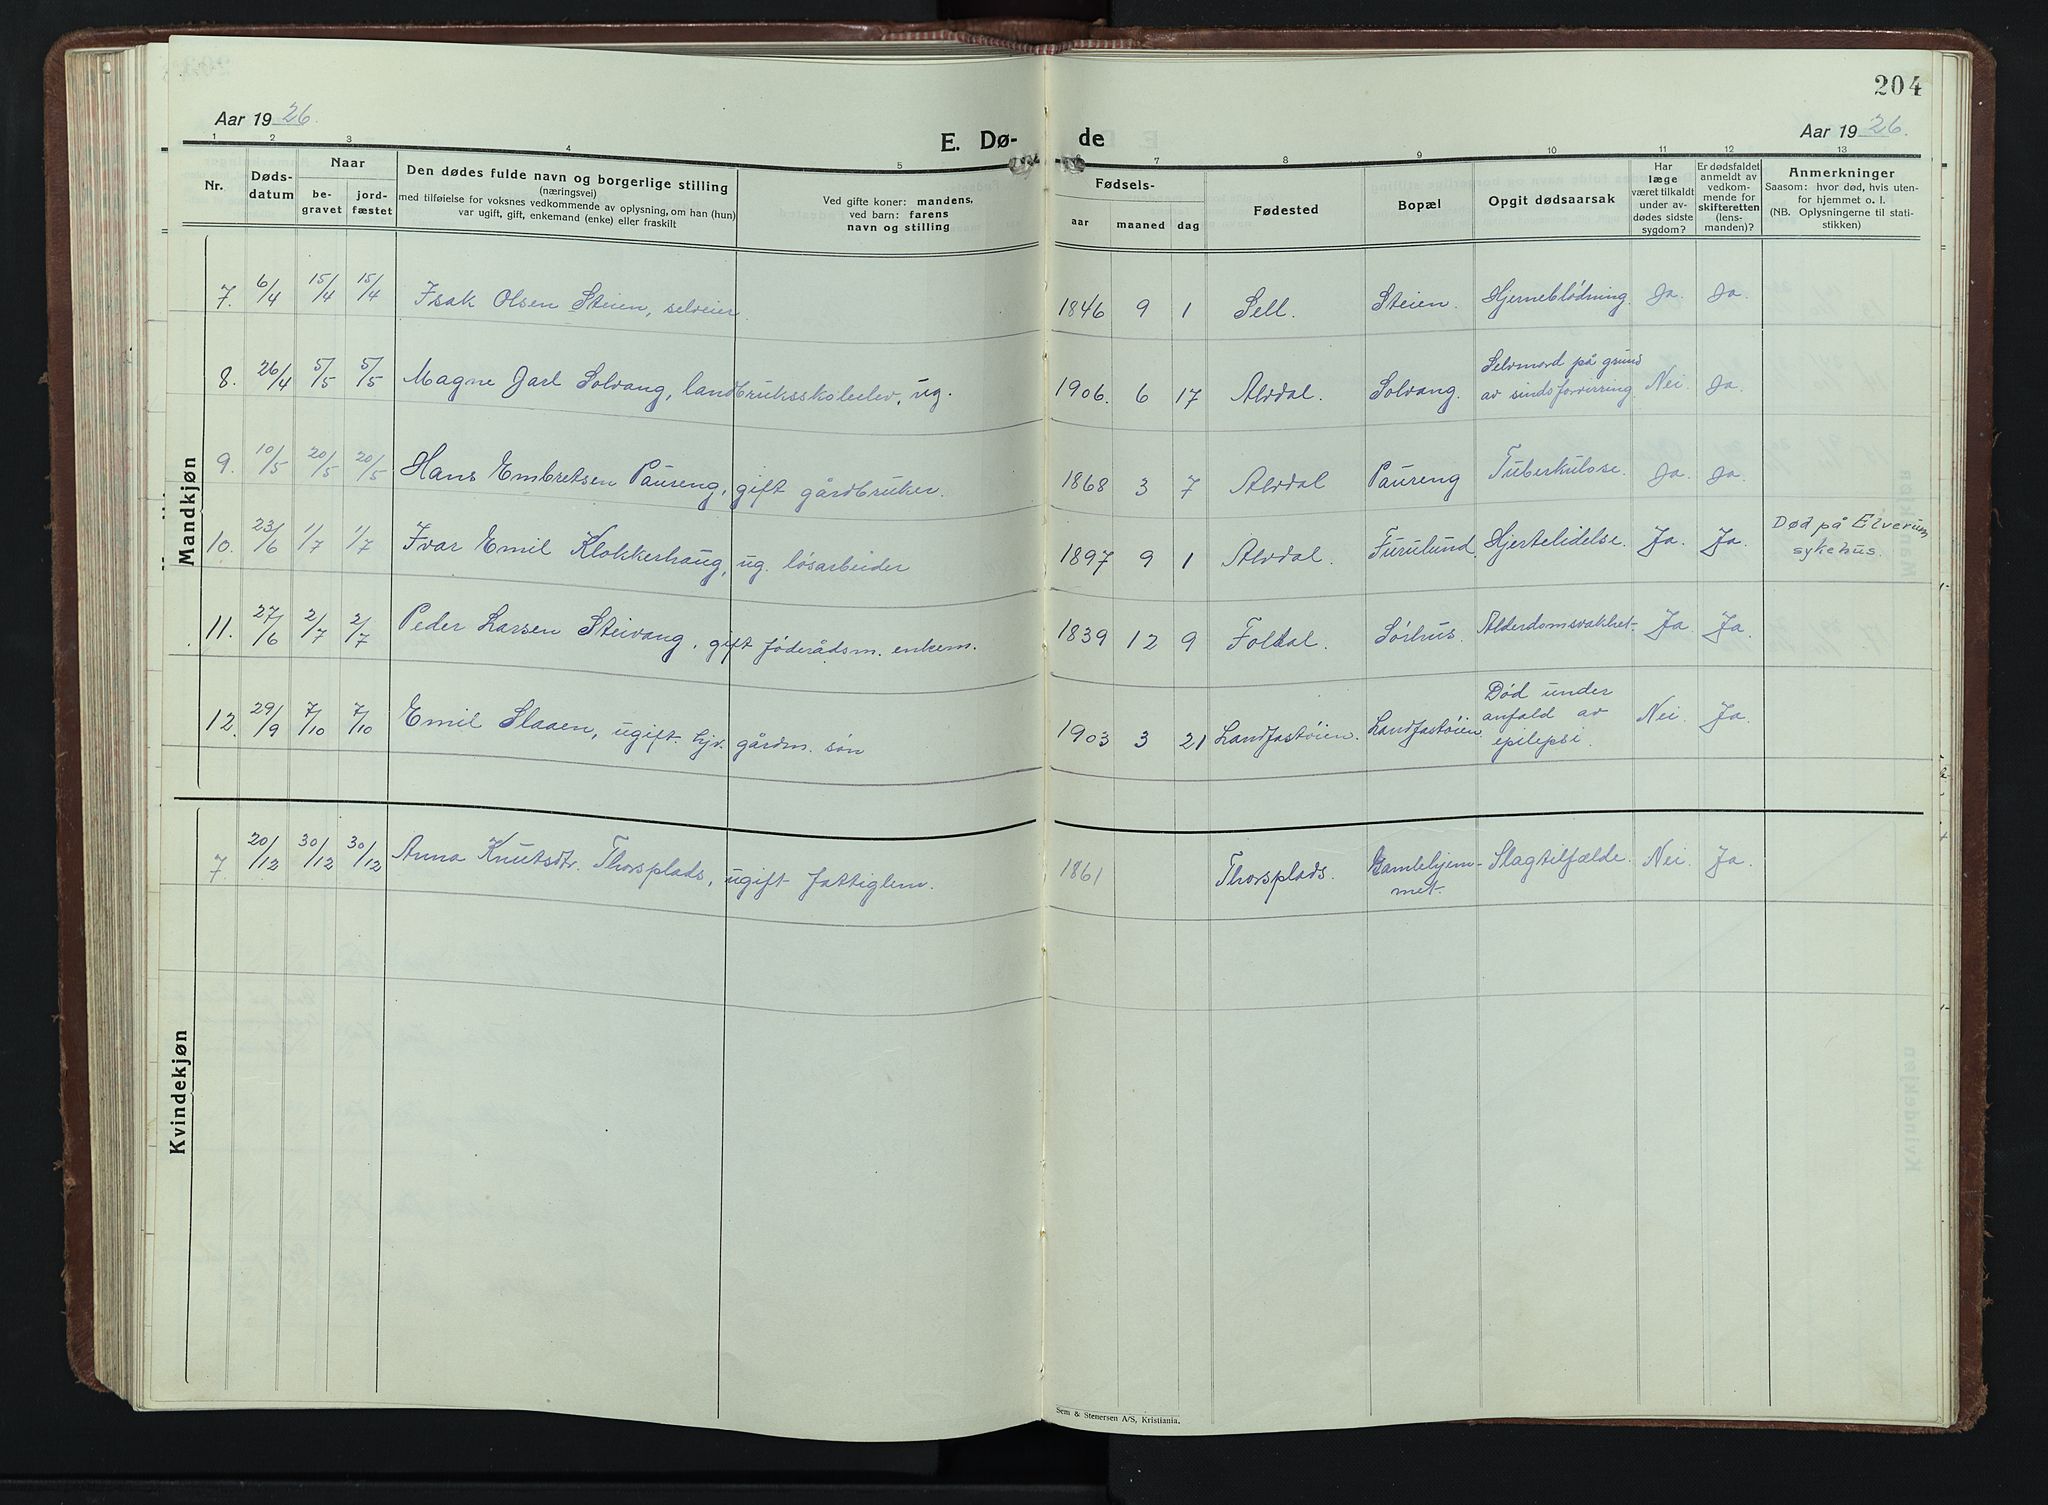 204
Aar 1926.
E. Dø-
de
Aar 1926.
1 2 3 4 5 6 7 8 9 10 11 12 13
Nr.
Døds-
datum
Naar
be-
gravet
jord-
fæstet
Den dødes fulde navn og borgerlige stilling
(næringsvei)
med tilføielse for voksnes vedkommende av oplysning, om han (hun)
var ugift, gift, enkemand (enke) eller fraskilt
Ved gifte koner: mandens,
ved barn: farens
navn og stilling
Fødsels-
aar
maaned
dag
Fødested
Bopæl
Opgit dødsaarsak
Har
læge
været tilkaldt
under av-
dødes sidste
sygdom?
Er dødsfaldet
anmeldt av
vedkom-
mende for
skifteretten
(lens-
manden)?
Anmerkninger
Saasom: hvor død, hvis uten-
for hjemmet o. l.
(NB. Oplysningerne til stati-
stikken)
Mandkjøn
7. 6/4 15/4 15/4 Isak Olsen Steien, selveier 1846 9 1 Sell. Steien. Hjerneblødning. Ja. Ja.
8. 26/4 5/5 5/5 Magne Jarl Solvang, landbruksskoleelev, ug. 1906. 6 17 Alvdal. Solvang. Selvmord på grund
av sindsforvirring. Nei. Ja.
9. 10/5 20/5 20/5 Hans Embretsen Paureng, gift gårdbruker. 1868 3 7 Alvdal Paureng Tuberkulose. Ja. Ja.
10. 23/6 1/7 1/7 Ivar Emil Klokkerhaug, ug. løsarbeider 1897 9 1 Alvdal. Furulund. Hjertelidelse. Ja. Ja. Død på Elverum
sykehus.
11. 27/6 2/7 2/7 Peder Larsen Steivang, gift føderådsm. enkem. 1839 12 9 Foldal. Sørhus. Alderdomsvakhet. Ja. Ja.
12. 29/9 7/10 7/10 Emil Slaaen, ugift. hjv. gårdm. søn 1903 3 21 Landfastøien. Landfastøien. Død under
anfald av
epilepsi. Nei. Ja.
Kvindekjøn
7. 20/12 30/12 30/12 Anna Knutsdtr. Thorsplads, ugift fattiglem. 1861 Thorsplads. Gamlehjem-
met. Slagtilfælde. Nei. Ja.
Sem & Stenersen A/S, Kristiania.